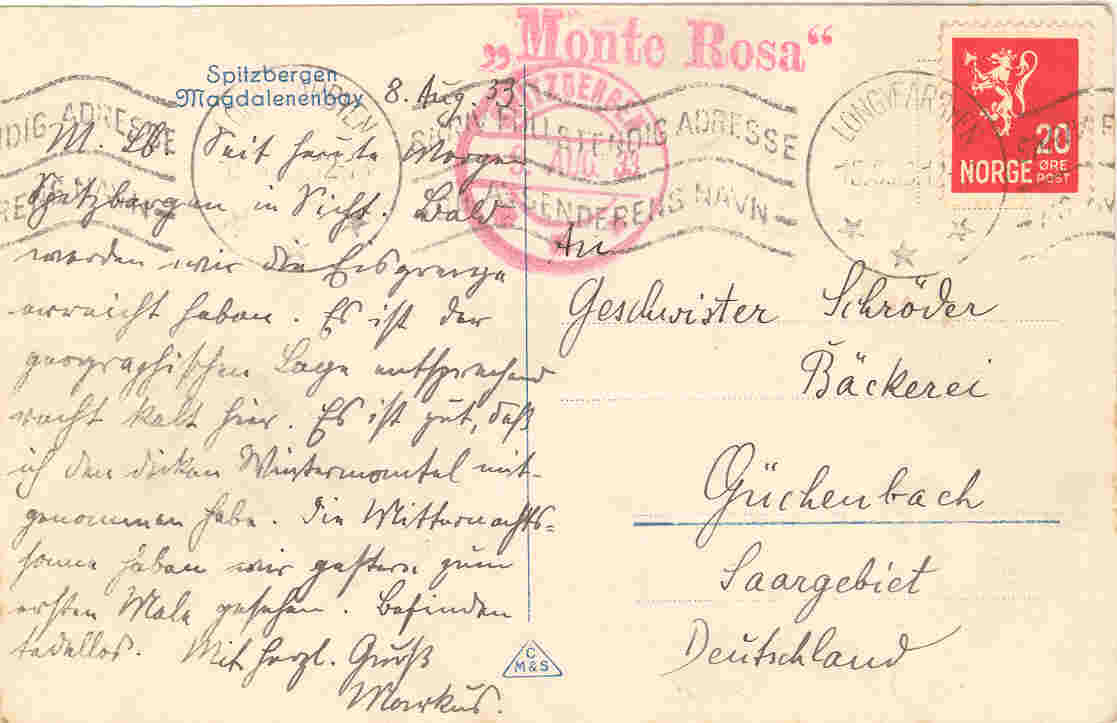 „Monte Rosa“
Spitzbergen
Magdalenenbay
8. Aug. 33.
M. Lb. Seit heute Morgen
Spitzbergen in Sicht. Bald
werden wir die Eisgrenze
erreicht haben. Es ist der
geographischen Lage entsprechend
recht kalt hier. Es ist gut, daß
ich den dicken Wintermantel mit-
genommen habe. Die Mitternachts=
sonne haben wir gestern zum
ersten Male gesehen. Befinden
tadellos. Mit herzl. Gruß
Markus.
SPITZBERGEN
9. AUG. 33
FULLSTENDIG ADRESSE
AVSENDERENS NAVN
LONGYEARBYEN
20
NORGE ØRE
POST
An
Geschwister Schröder
Bäckerei
Güchenbach
Saargebiet
Deutschland
C
M&S